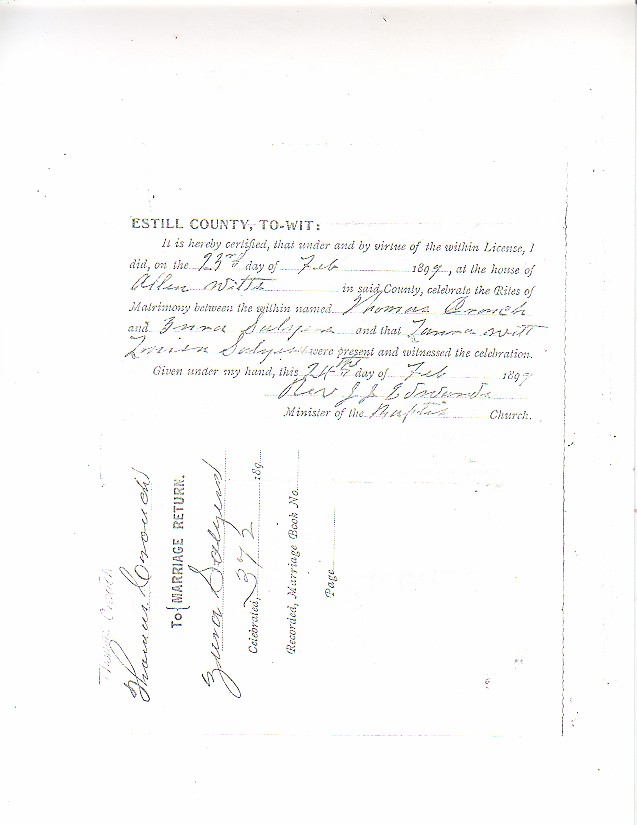 ESTILL COUNTY, TO-WIT:
It is hereby certified, that under and by virtue of the within License, I
did, on the 23rd day of Feb 1897, at the house of
Allen Witts in said County, celebrate the Rites of
Matrimony between the within named Thomas Crouch
and Zura Salyers and that Witt
Salyers were present and witnessed the celebration.
Given under my hand, this 24th day of Feb 1897
Rev J J Edwards
Minister of the Baptis Church.
Thomas Crouch
To MARRIAGE RETURN.
Zura Salyers
Celebrated, 372 189
Recorded, Marriage Book No.
Page